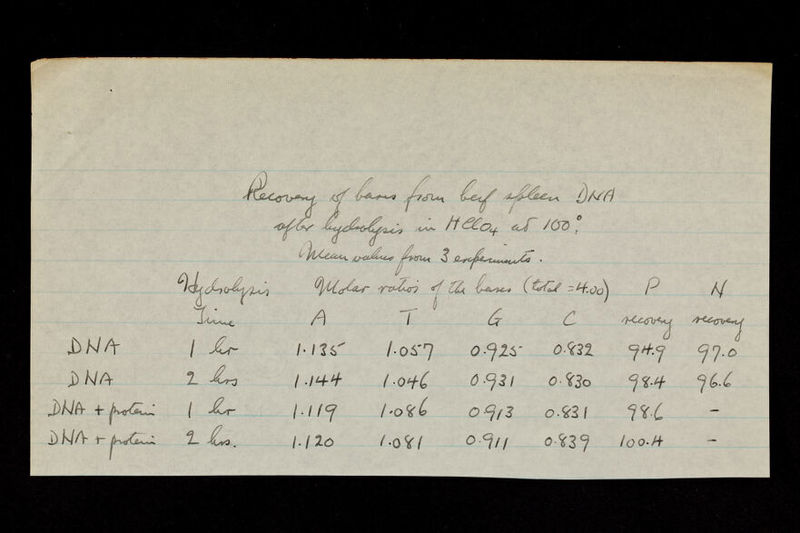 Recovery of bases from beef spleen DNA
after hydrolysis in HClO4 at 100°.
Mean values from 3 experiments.
Hydrolysis Molar ratios of the bases (total = 4.00) P N
Time A T G C recovery recovery
DNA 1 hr 1.135 1.057 0.925 0.832 94.9 97.0
DNA 2 hrs 1.144 1.046 0.931 0.830 98.4 96.6
DNA + protein 1 hr 1.119 1.086 0.913 0.831 98.6 -
DNA + protein 2 hrs. 1.120 1.081 0.911 0.839 100.4 -